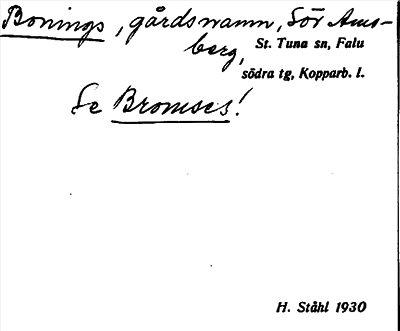 Bonings, gårdsnamn, Sör Ams-
berg,
St. Tuna sn, Falu
södra tg, Kopparb. l.
Se Bromses!
H. Ståhl 1930